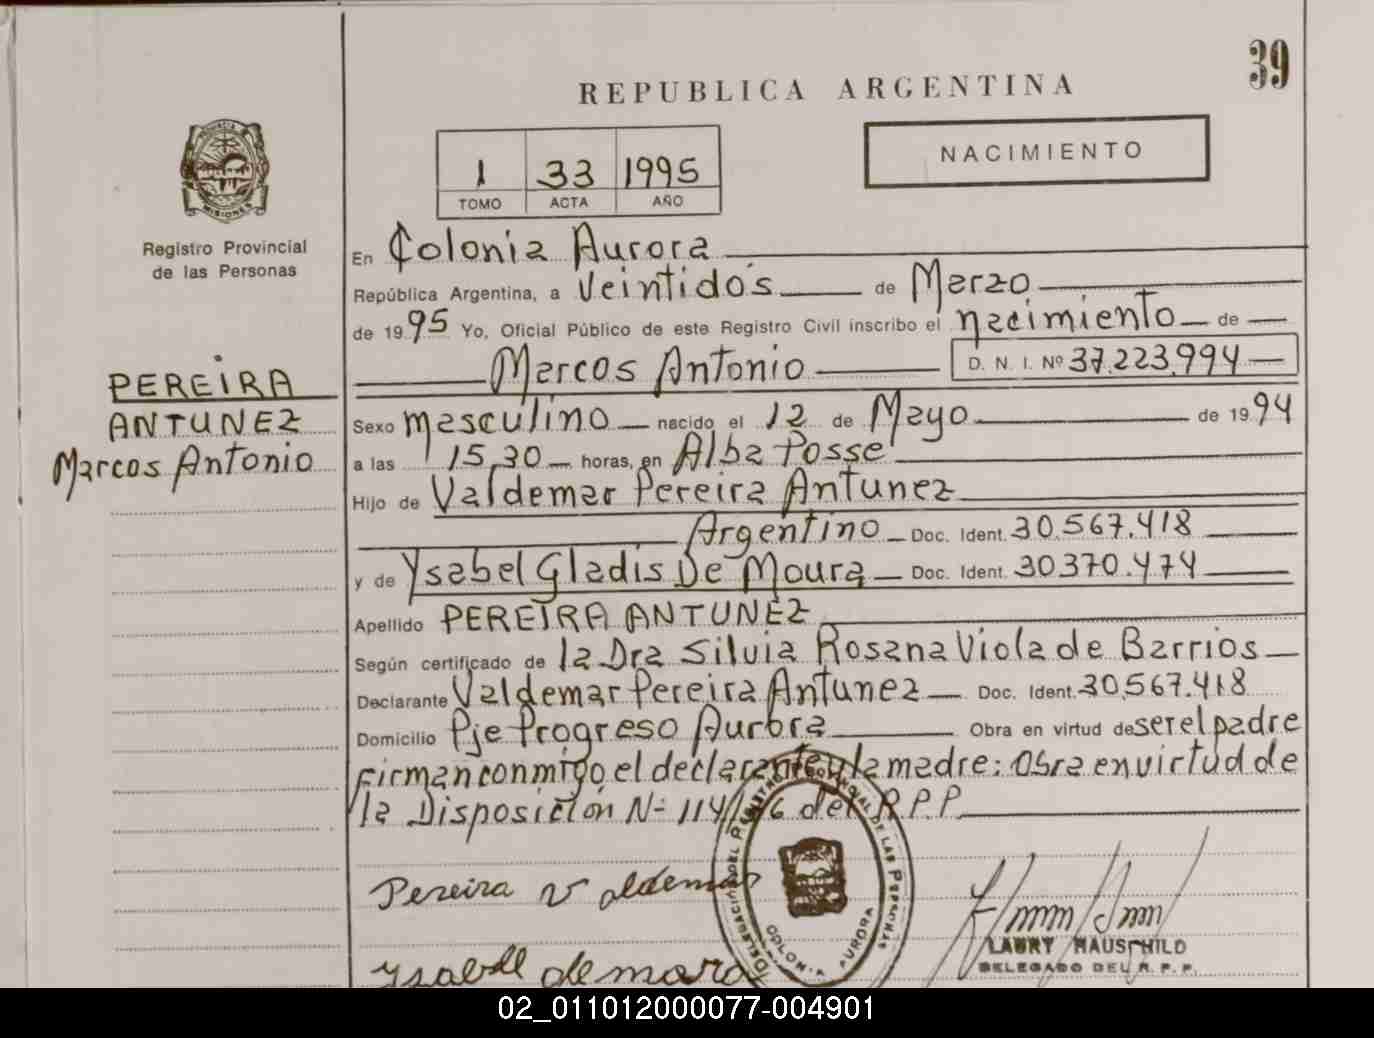 39
REPUBLICA ARGENTINA
NACIMIENTO
1 33 1995
TOMO ACTA AÑO
PROVINCIA DE MISIONES
Registro Provincial
de las Personas
En Colonia Aurora
República Argentina, a Veintidós de Marzo
de 1995 Yo, Oficial Público de este Registro Civil inscribo el nacimiento de
Marcos Antonio D. N. I. Nº 37.223.994
PEREIRA
ANTUNEZ
Marcos Antonio
Sexo masculino nacido el 12 de Mayo de 1994
a las 15,30 horas, en Alba Posse
Hijo de Valdemar Pereira Antunez
Argentino Doc. Ident. 30.567.418
y de Ysabel Gladis De Moura Doc. Ident. 30370.474
Apellido PEREIRA ANTUNEZ
Según certificado de la Dra Silvia Rosana Viola de Barrios
Declarante Valdemar Pereira Antunez Doc. Ident. 30.567.418
Domicilio Pje Progreso Aurora Obra en virtud de ser el padre
firman conmigo el declarante y la madre: Obra en virtud de
la Disposición Nº 114 del R.P.P.
DELEGACION DEL REGISTRO PROVINCIAL DE LAS PERSONAS
COLONIA AURORA
Pereira Valdemar
LAURY HAUSCHILD
DELEGADO DEL R. P. P.
Ysabell de mora
02_011012000077-004901